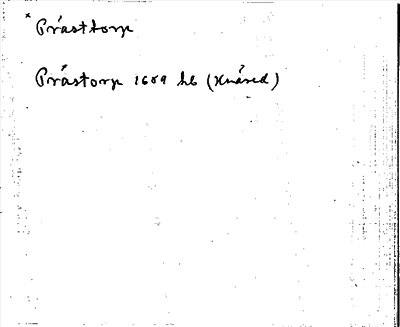 * Prästtorp
Prästorp 1689 hb (Knäred)